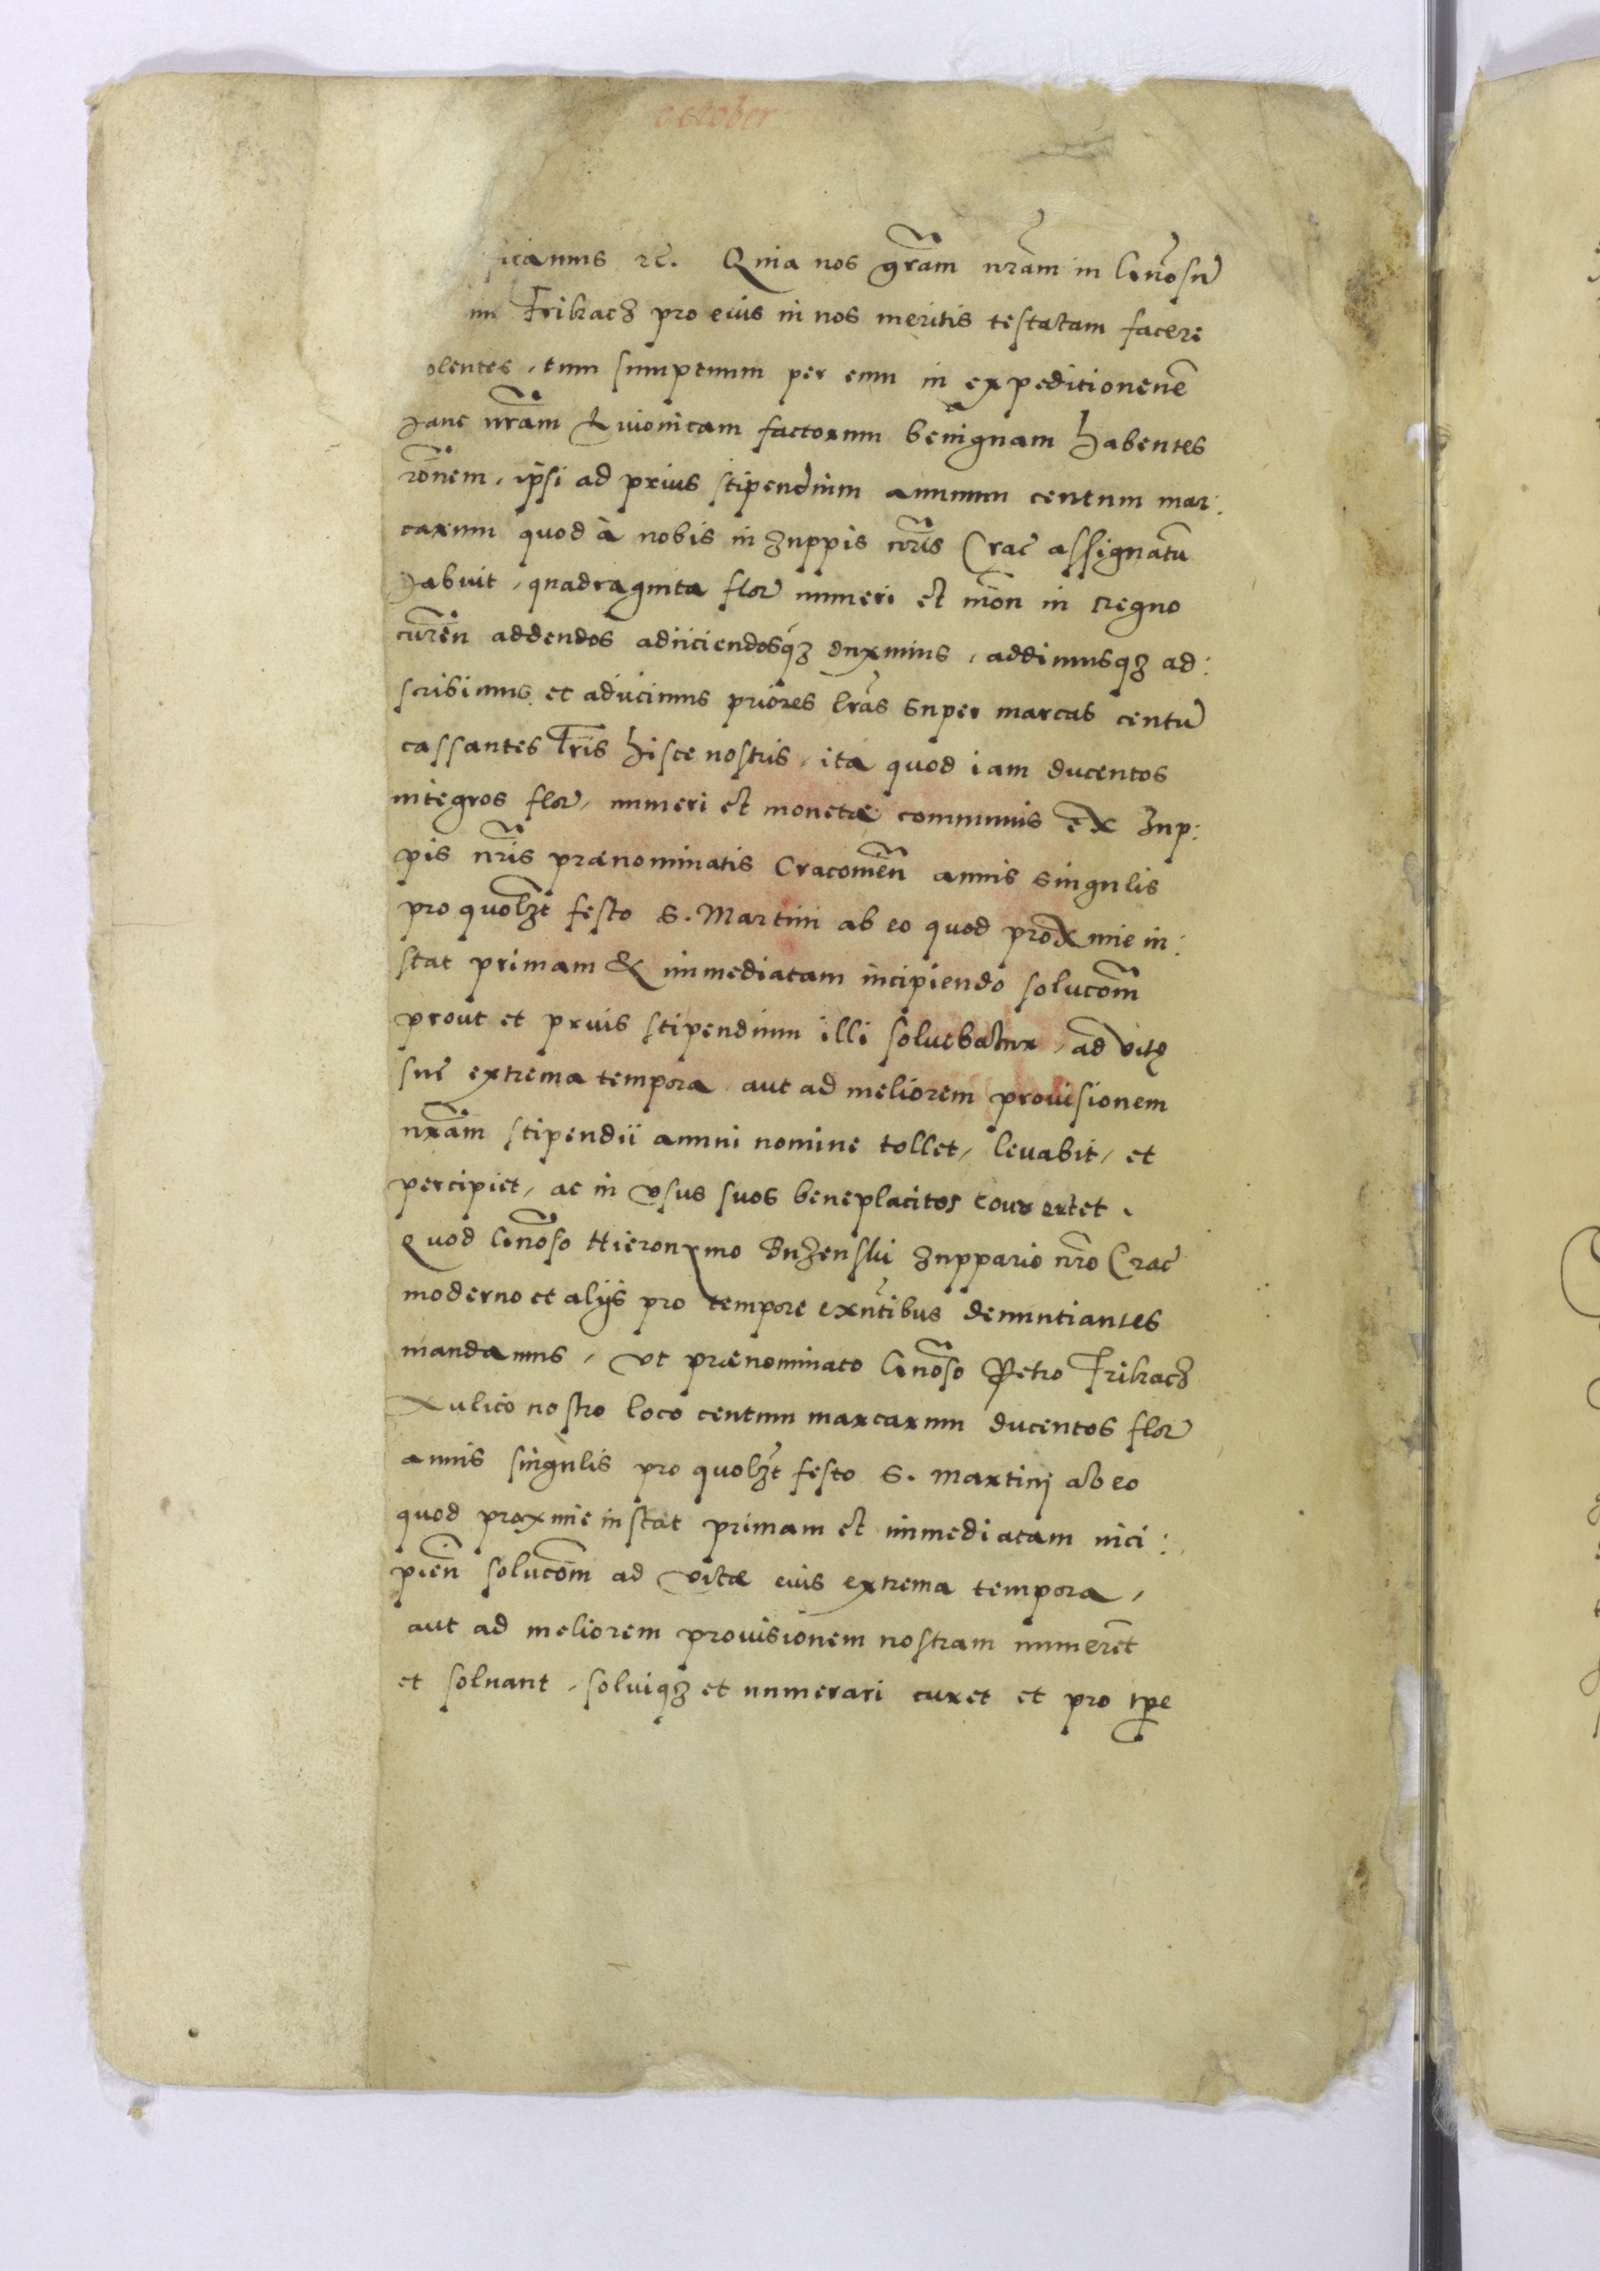 october
ficamus etc. Quia nos gram nram in Gnosu
m Fribracz pro eius in nos meritis testatam facere
olentes, tum sumptuum per eum in expeditionem
hanc nram Livonicam factorum benignam habentes
ronem, ipsi ad prius stipendium annuum centum mar:
carum quod à nobis in zuppis nris Crac assignatu
habuit, quadraginta flor numeri et mon in regno
curen addendos adiiciendosqz duximus, addimusqz ad:
scribimus et adiicimus priores lras super marcas centu
cassantes lris hisce nostris, ita quod iam ducentos
integros flor, numeri et monetæ communis ex zup:
pis nris prænominatis Cracovien annis singulis
pro quolzt festo S. Martini ab eo quod proxime in:
stat primam & immediatam incipiendo solucom
prout et prius stipendium illi solvebatur, ad vitę
sue extrema tempora aut ad meliorem provisionem
nram stipendii annui nomine tollet, levabit, et
percipiet, ac in usus suos beneplacitos convertet.
Quod Gnoso Hieronymo Buzenski zuppario nro Crac
moderno et alijs pro tempore exntibus denuntiantes
mandamus, ut prænominato Gnoso Petro Fribracz
Aulico nostro loco centum marcarum ducentos flor
annis singulis pro quolzt festo S. Martinj ab eo
quod proxime instat primam et immediatam inci:
pien solucom ad vitæ eius extrema tempora,
aut ad meliorem provisionem nostram numeret
et solvant, solviqz et numerari curet et pro tpe